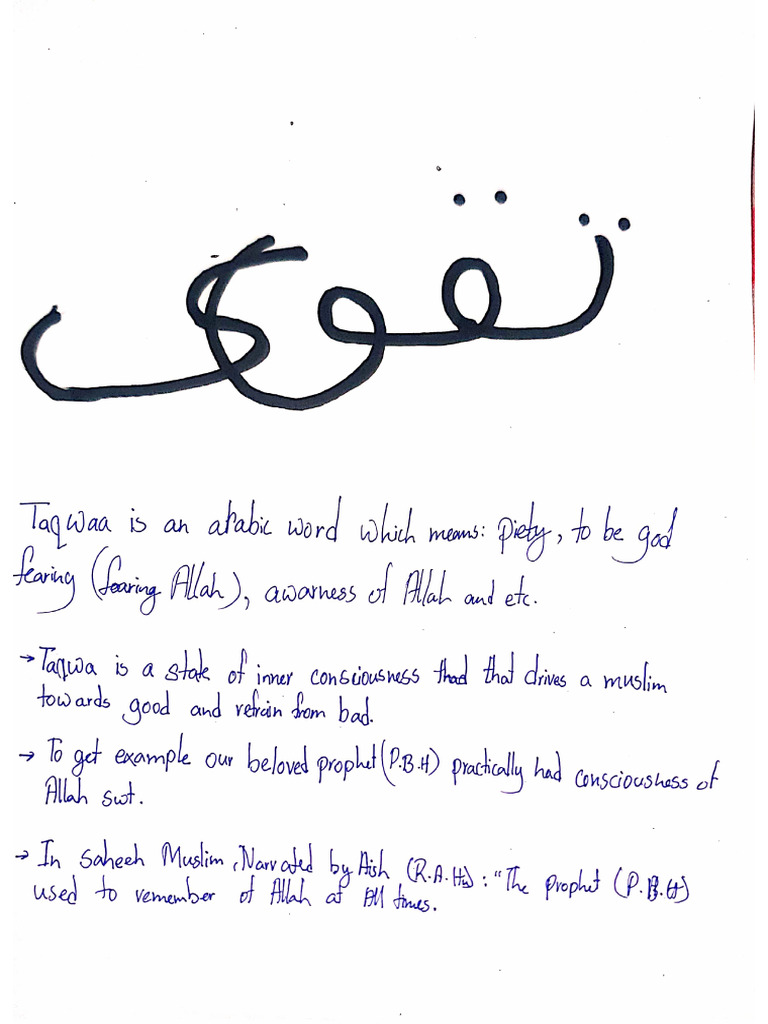 تقوى
Taqwaa is an arabic word which means: piety, to be god
fearing (fearing Allah), awarness of Allah and etc.
→ Taqwa is a state of inner consciousness thad that drives a muslim
towards good and refrain from bad.
→ To get example our beloved prophet (P.B.H) practically had consciousness of
Allah swt.
→ In saheeh Muslim, Narrated by Aish (R.A.Ha): "The prophet (P.B.H)
used to remember of Allah at All times.